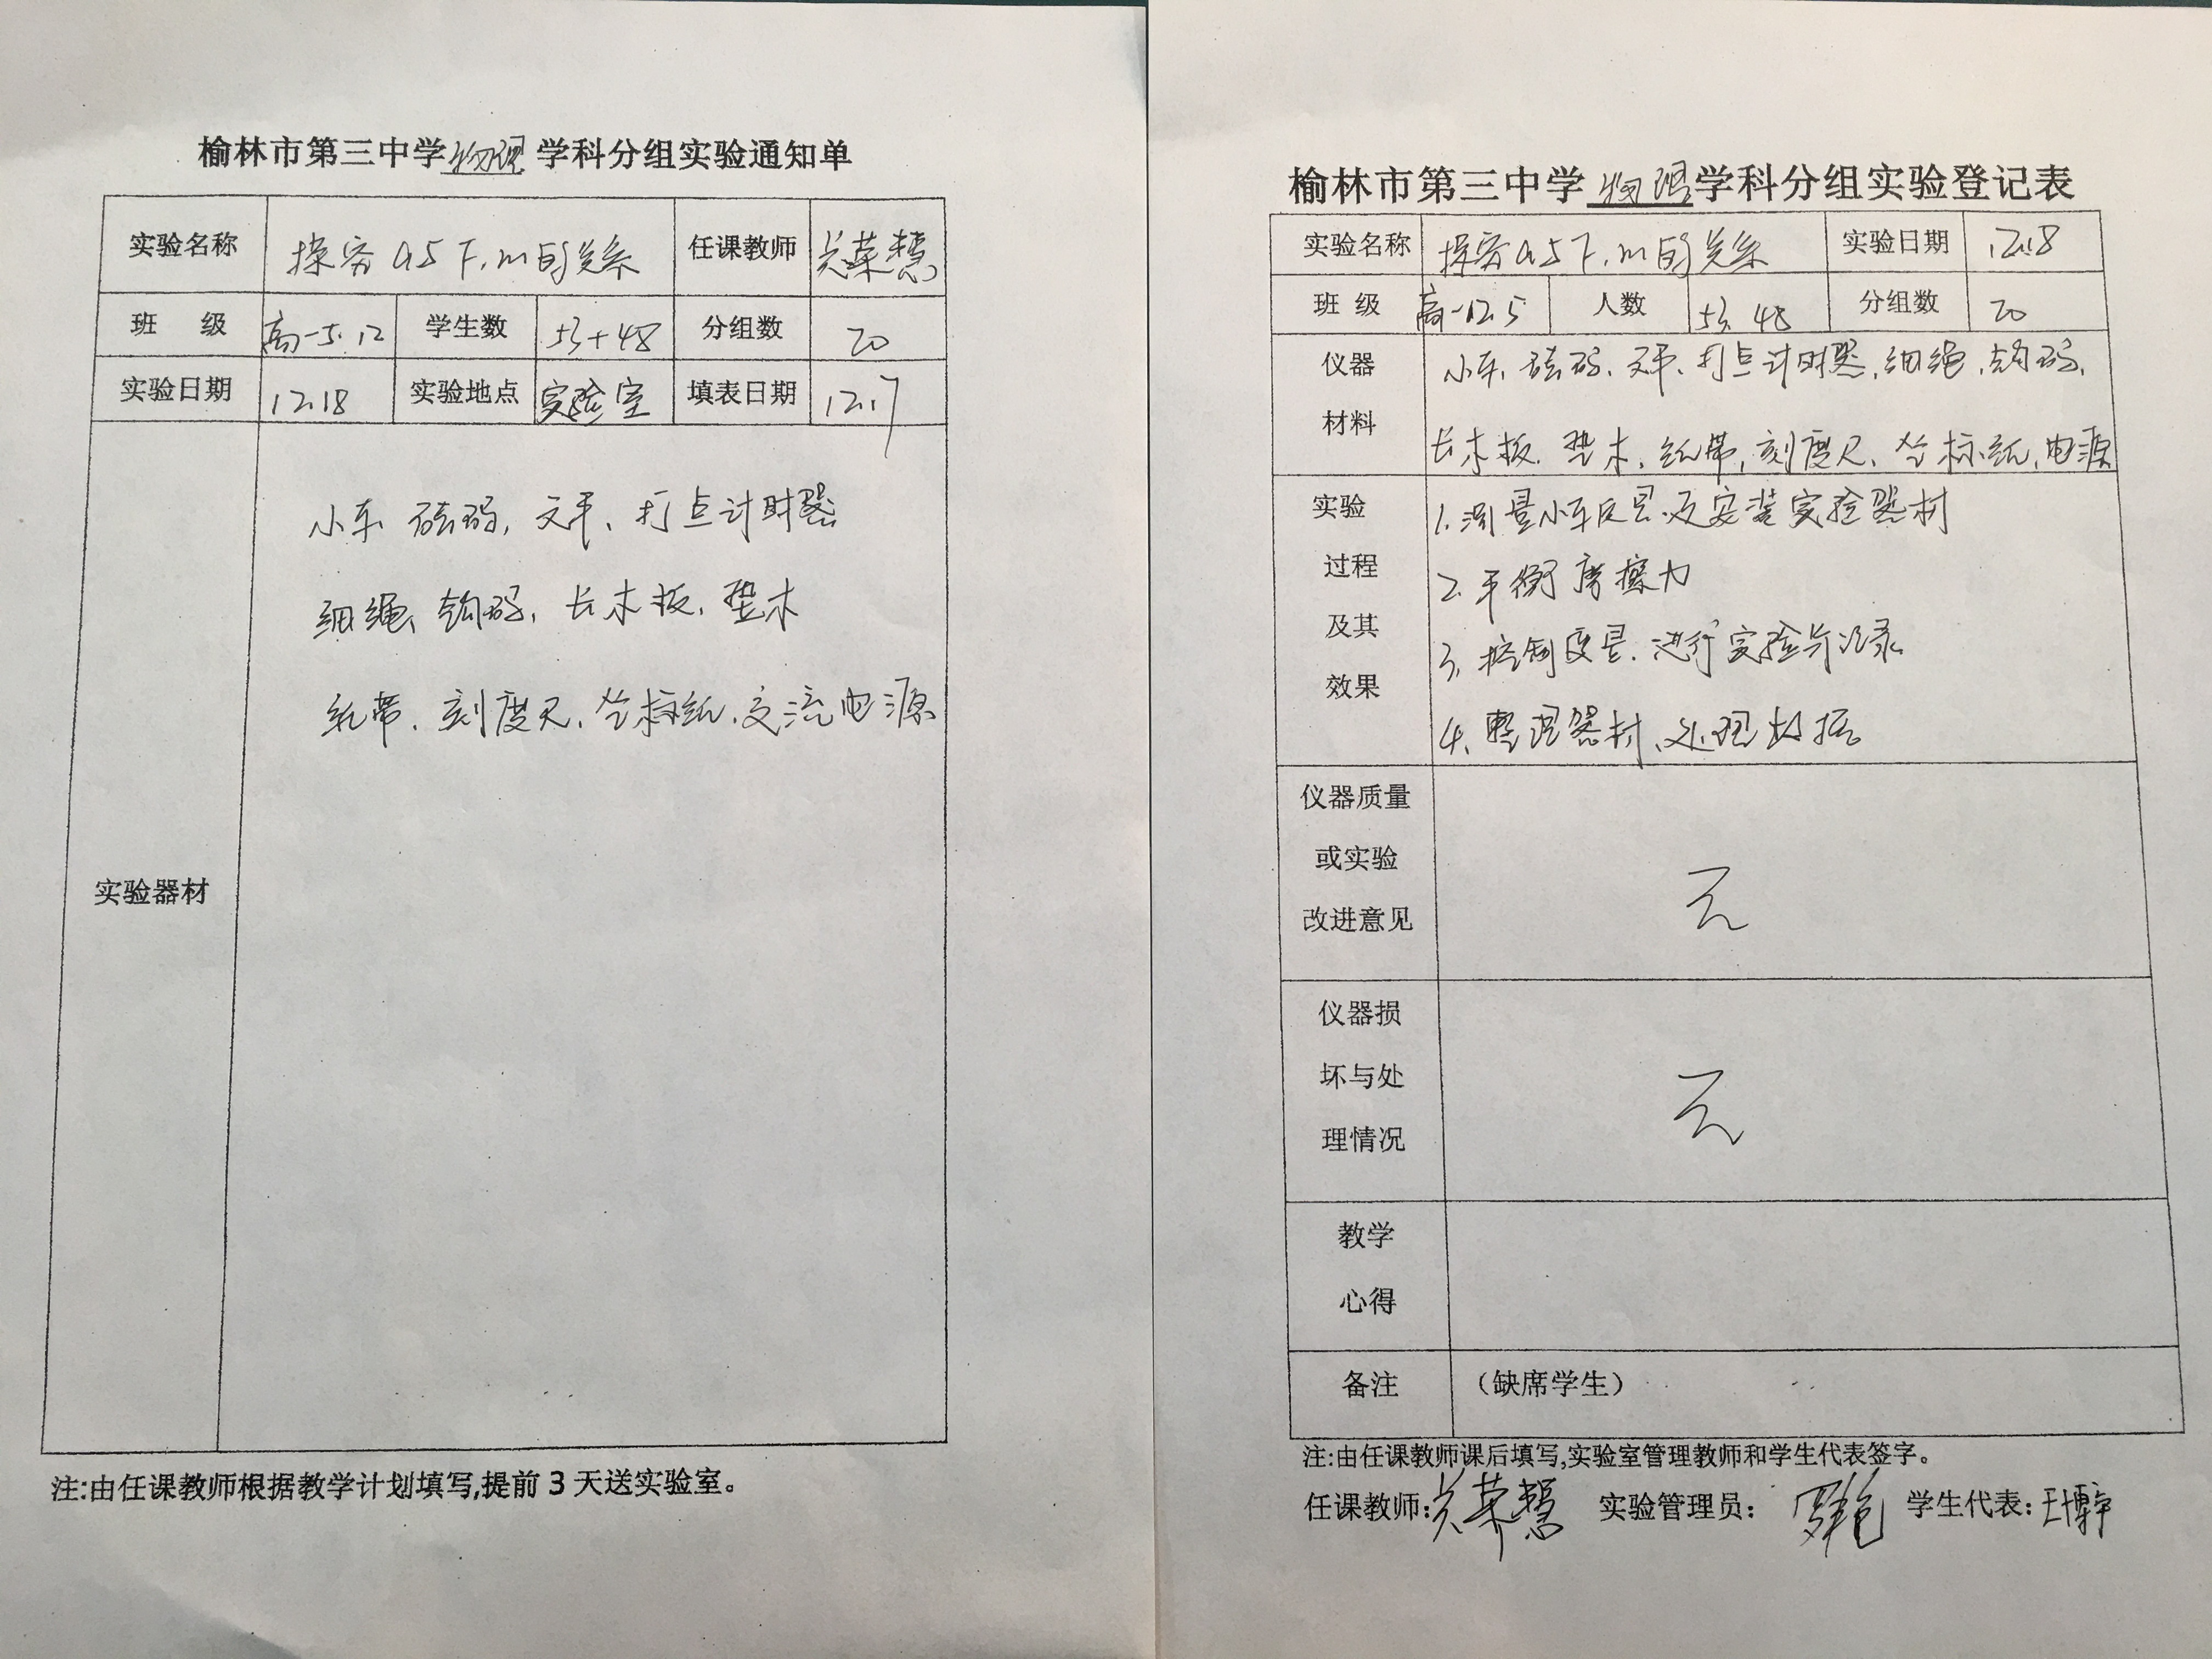 榆林市第三中学物理学科分组实验通知单
实验名称 探究a与F、m的关系 任课教师 荣慧
班 级 高一5.12 学生数 53+48 分组数 20
实验日期 12.18 实验地点 实验室 填表日期 12.17
实验器材
小车 砝码、天平、打点计时器
细绳、钩码、长木板、垫木
纸带、刻度尺、坐标纸、交流电源
注:由任课教师根据教学计划填写,提前3天送实验室。
榆林市第三中学物理学科分组实验登记表
实验名称 探究a与F、m的关系 实验日期 12.18
班 级 高一12.5 人数 53.48 分组数 20
仪器
材料
小车、砝码、天平、打点计时器、细绳、钩码、
长木板、垫木、纸带、刻度尺、坐标纸、电源
实验
过程
及其
效果
1.测量小车质量及安装实验器材
2.平衡摩擦力
3.控制变量、进行实验与记录
4、整理器材、处理数据
仪器质量
或实验
改进意见
无
仪器损
坏与处
理情况
无
教学
心得
备注 （缺席学生）
注:由任课教师课后填写,实验室管理教师和学生代表签字。
任课教师: 荣慧 实验管理员: 学生代表: